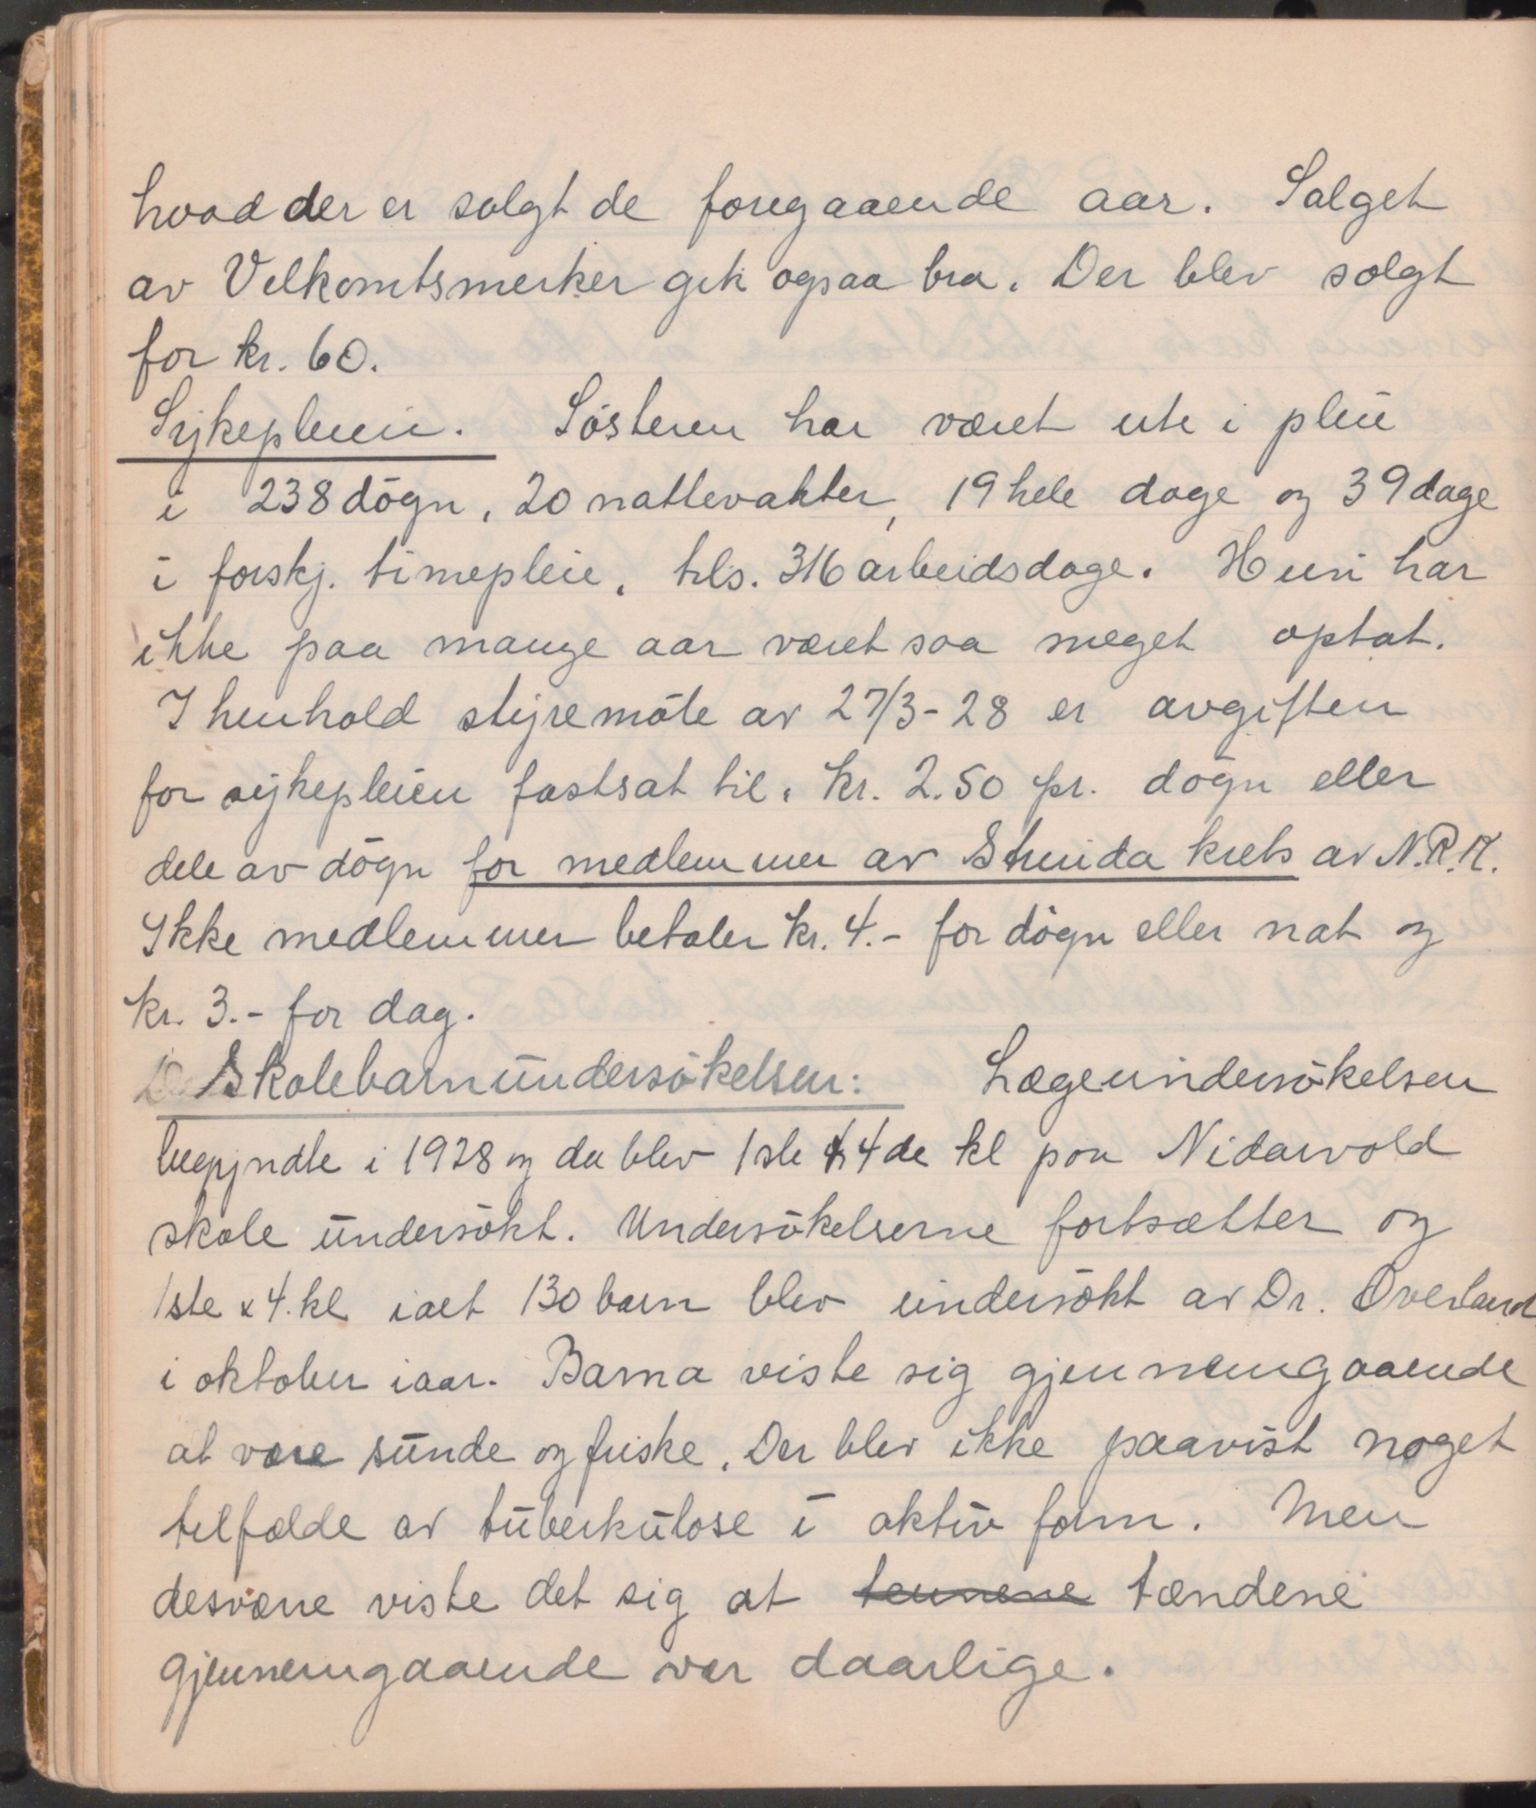 hvad der er solgt de foregaaende aar. Salget
av Velkomtsmerker gik ogsaa bra. Der blev solgt
for kr. 60.
Sykepleien. Søsteren har været ute i pleie
i 238 døgn, 20 nattevakter, 19 hele dage og 39 dage
i forskj. timepleie, tils. 316 arbeidsdage. Hun har
ikke paa mange aar været saa meget optat.
I henhold styremøte av 27/3-28 er avgiften
for sykepleien fastsat til. kr. 2.50 pr. døgn eller
dele av døgn for medlemmer av Strinda krets av N.R.K.
Ikke medlemmer betaler kr. 4.- for døgn eller nat og
kr. 3.- for dag.
Skolebarnundersøkelsen: Lægeundersøkelsen
begyndte i 1928 og da blev 1ste & 4de kl paa Nidarvold
skole undersøkt. Undersøkelserne fortsætter og
1ste & 4. kl ialt 130 barn blev undersøkt av Dr. Overland
i oktober iaar. Barna viste sig gjennemgaaende
at være sunde og friske. Der blev ikke paavist noget
tilfælde av tuberkulose i aktiv form. Men
desværre viste det sig at tennene tændene
gjennemgaaende var daarlige.